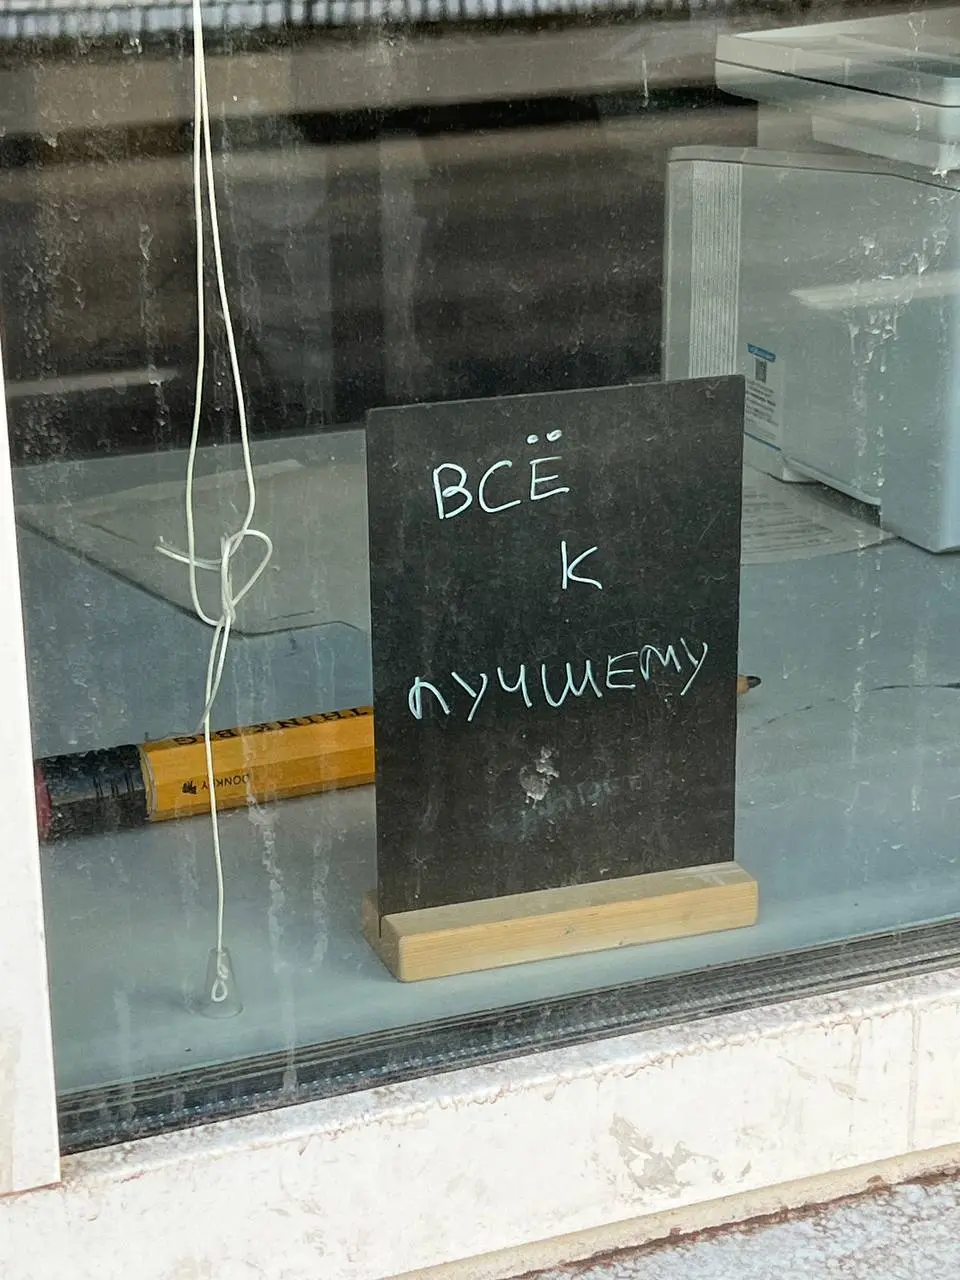 ВСЁ
К
ЛУЧШЕМУ
THINK BIG
DONKEY